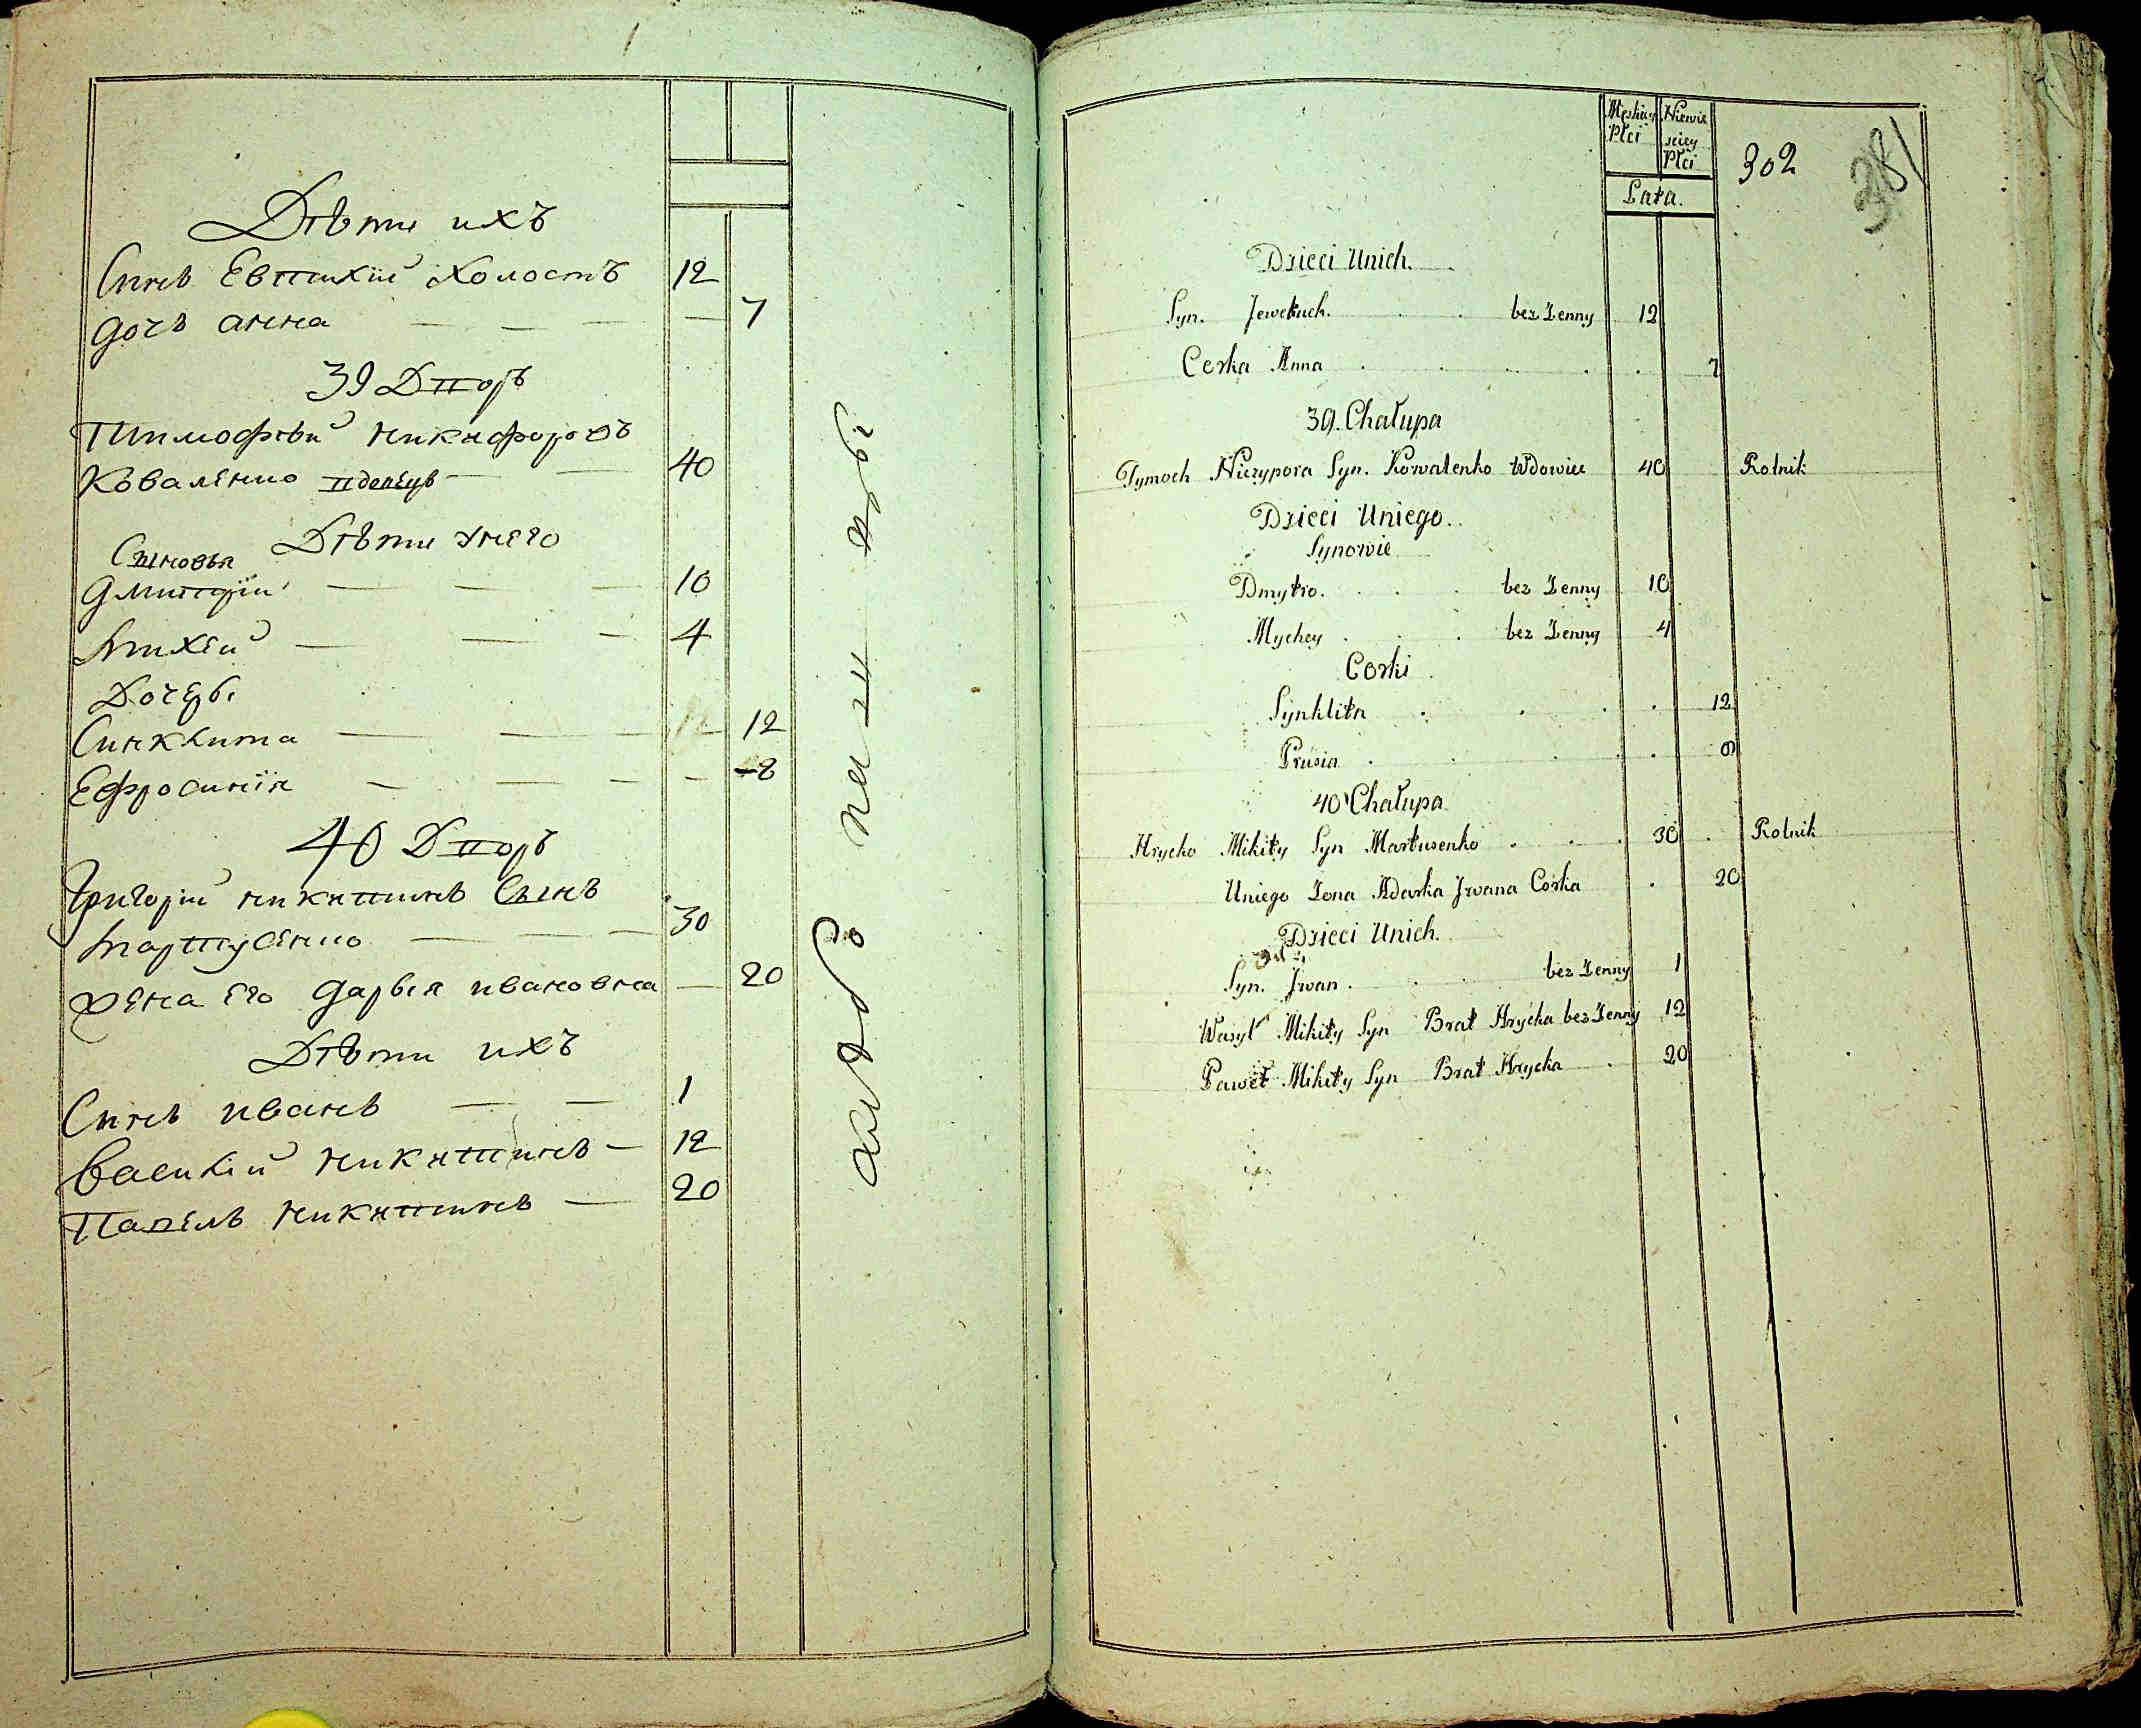 Дѣти ихъ
Сынъ Евтихій Холостъ 12
дочь анна 7
39 Дворъ
Тимофѣй никифоровъ
Коваленко вдовецъ 40
Дѣти унего
Сыновья
Дмитрій 10
Михѣй 4
Дочери
Синклита 12
Ефросинія 8
40 Дворъ
Григорій никитинъ Сынъ
Мартусенко 30
жена его дарья ивановна 20
Дѣти ихъ
Сынъ иванъ 1
Василій никитинъ 12
Павелъ никитинъ 20
Męskiey Płci
Niewieściey Płci
Lata.
302
381
Dzieci Unich.
Syn. Jewctuch. bez Zenny 12
Corka Anna 7
39. Chałupa
Tymoch Niczypora Syn. Kowalenko Wdowiec 40 Rolnik
Dzieci Uniego.
Synowie
Dmytro. bez Zenny 10
Mychey bez Zenny 4
Corki
Synklita 12
Prusia 8
40 Chałupa
Hrycko Mikity Syn Martusenko 30 Rolnik
Uniego Zona Adarka Jwana Corka 20
Dzieci Unich.
Syn. Jwan. bez Zenny 1
Wasyl Mikity Syn Brat Hrycka bez Zenny 12
Paweł Mikity Syn Brat Hrycka 20